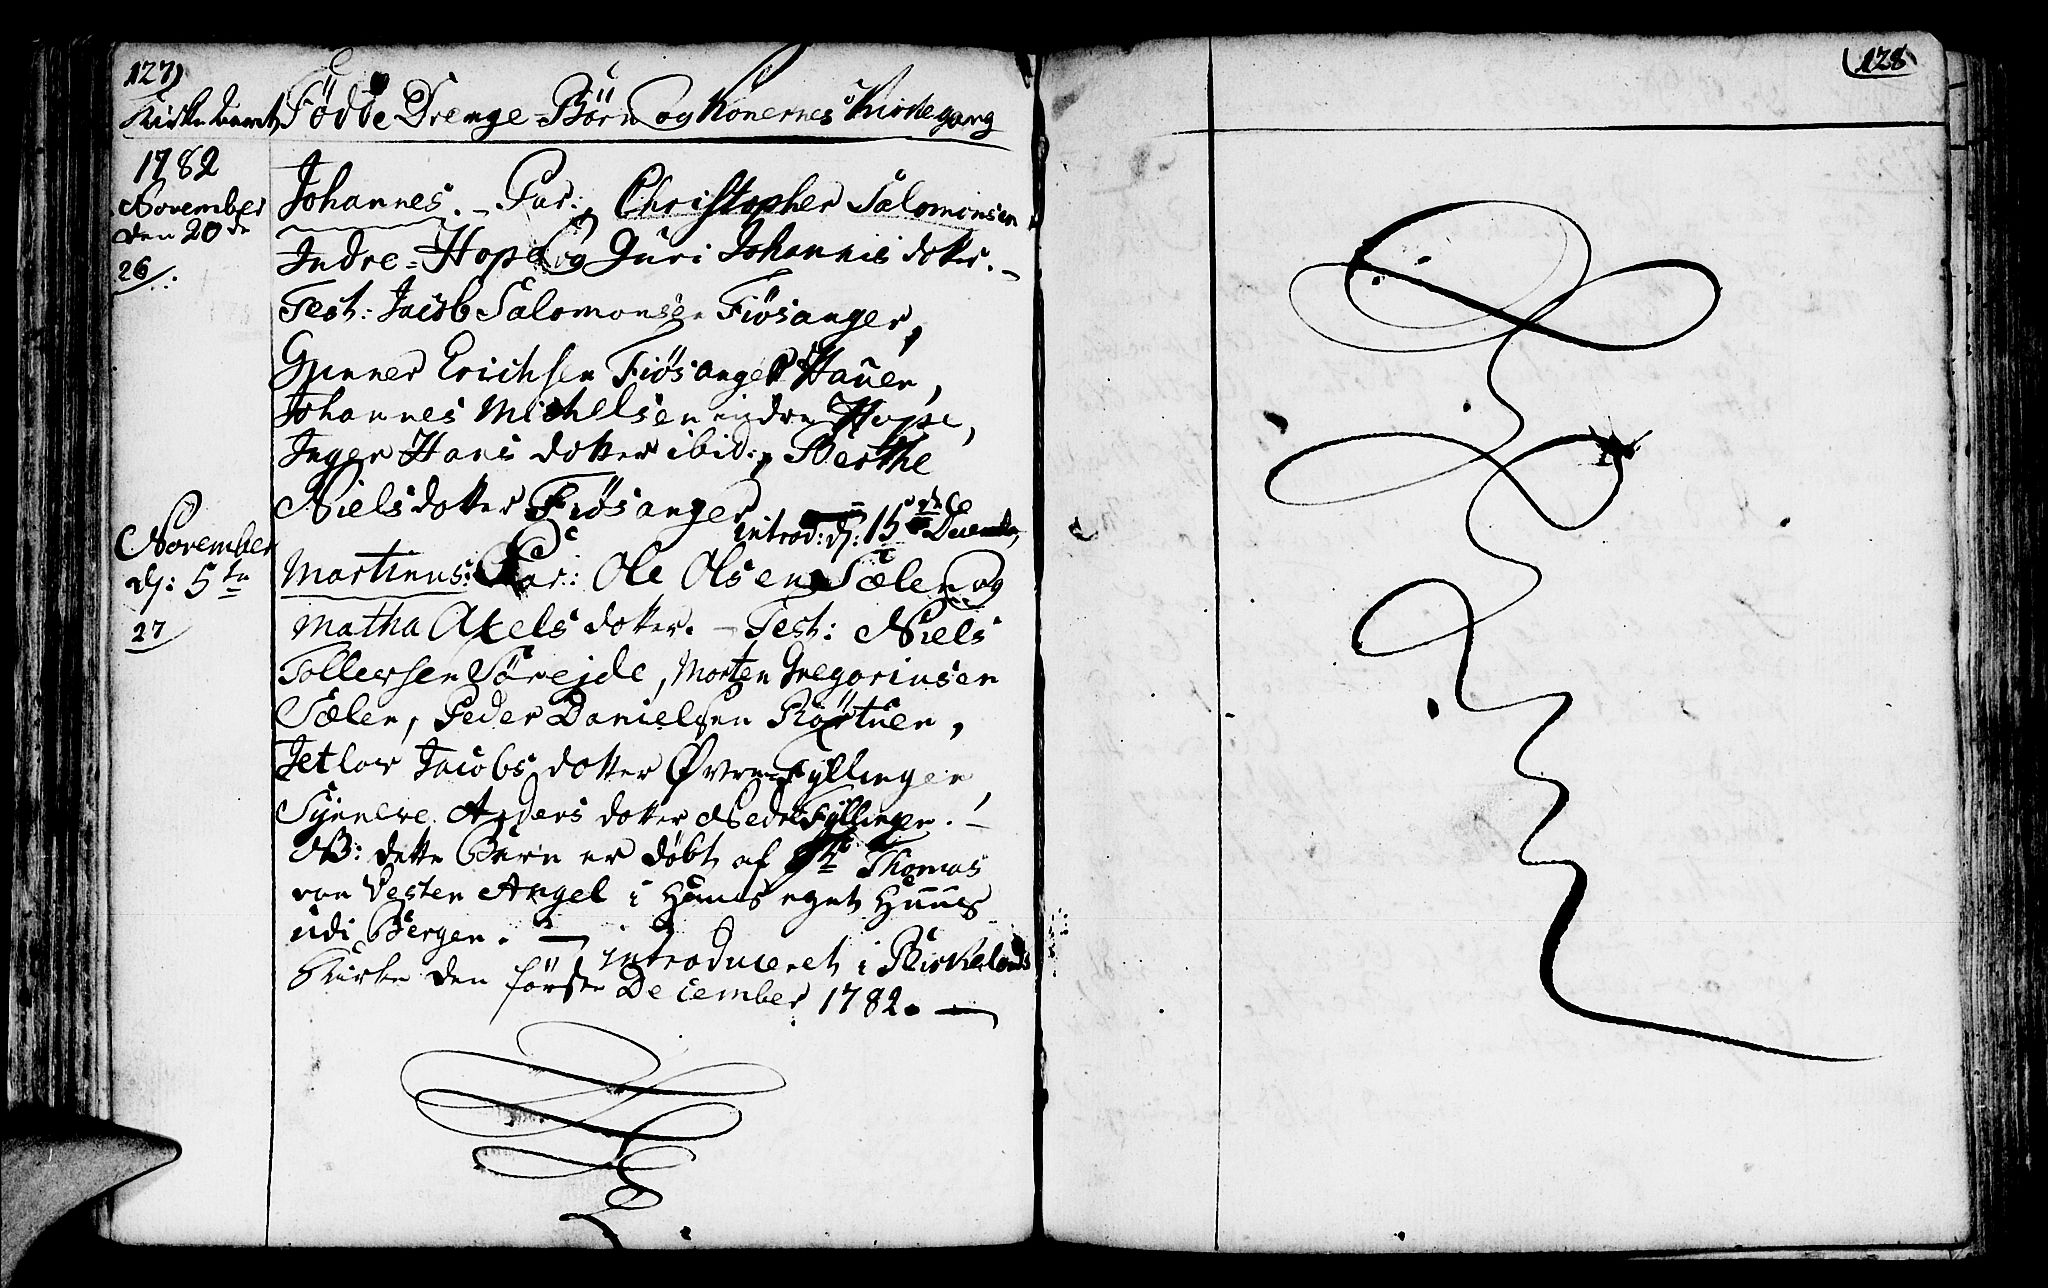 127)
Kirke Fødde Drenge-Børn og Konernes Kirkegang
1782
November
den 20de
26/.
Johannes. - Par: Christopher Salomonsen
Indre-Hope og Guri Johannis dotter. -
Test: Jacob Salomonsen Fiøsanger,
Gunner Erichsen Fiøsanger Hauen,
Johannes Michelsen indre Hope,
Inger Hans dotter ibid:, Berthe
Nielsdotter Fiøsanger
introd: d: 15de Decembr
November
d: 5te
27/
Martinus: Par: Ole Olsen Sælen og
Matha Axels dotter. - Test: Niels
Tollevsen Sørejde, Morten Gregoriusen
Sælen, Peder Danielsen Rørtuen,
Jetlow Jacobs dotter Øvre Fyllingen,
Synneve Anders dotter Nedre Fyllingen. -
NB: dette Barn er døbt af Hr Thomas
von Westen Angel i Hans eget Huus
udi Bergen. - introduceret i Birkelands
Kirke den første December 1782. -
128